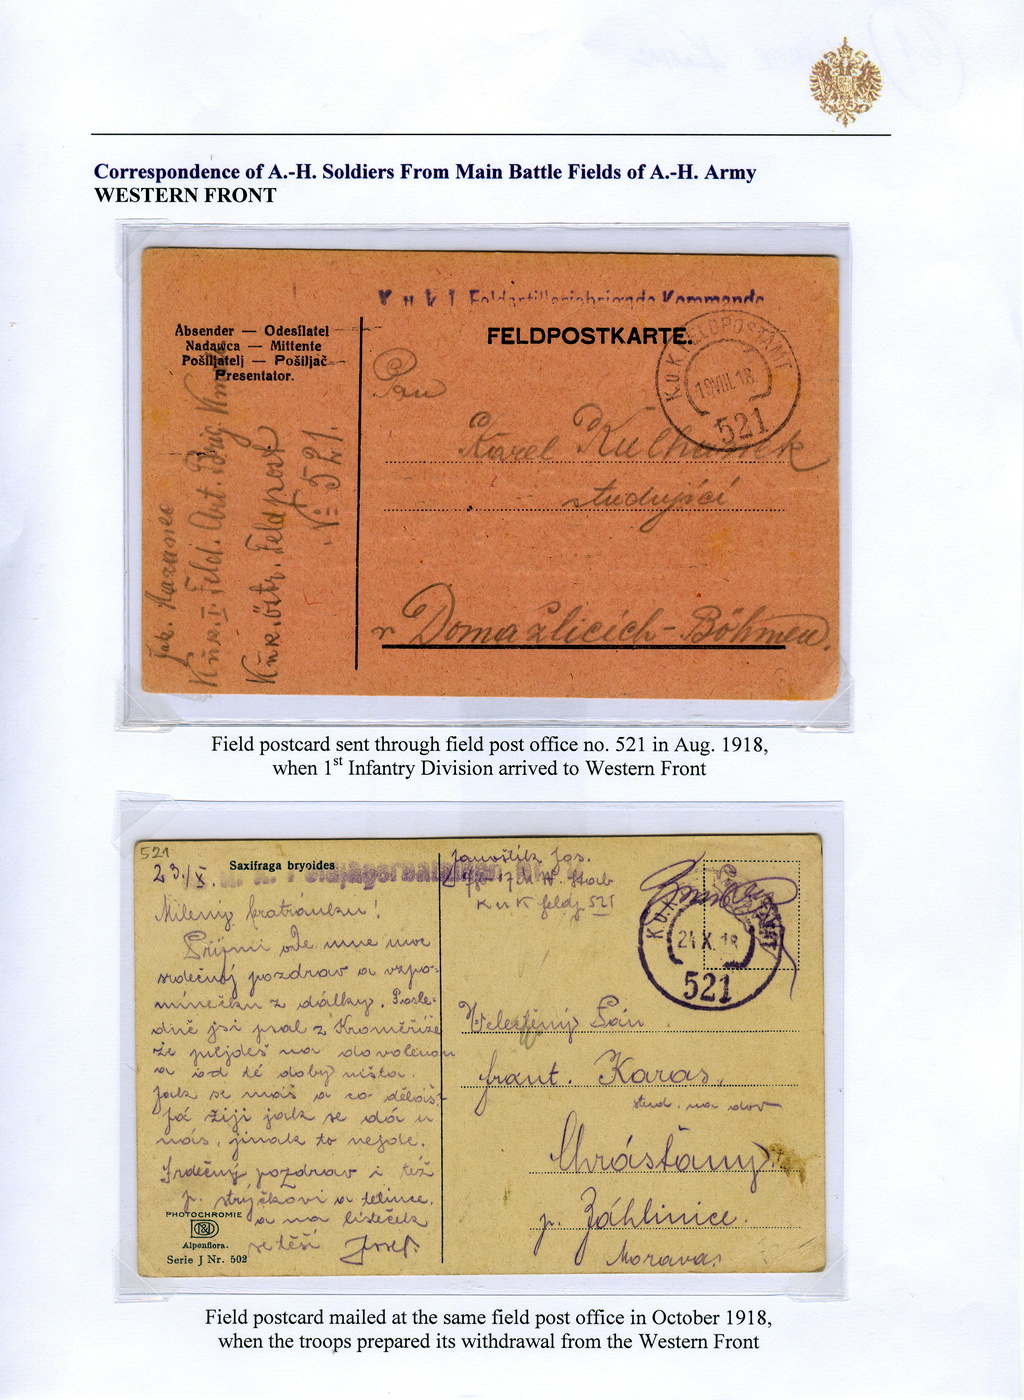 Correspondence of A.-H. Soldiers From Main Battle Fields of A.-H. Army
WESTERN FRONT
K. u. k. 1. Feldartilleriebrigade Kommando
Absender — Odesílatel
Nadawca — Mittente
Pošiljatelj — Pošiljač
Presentator.
FELDPOSTKARTE.
K.u.K. FELDPOSTAMT
19 VIII. 18
521
Pan
Karel Kulhánek
studující
v Domažlicích - Böhmen.
Jak.
K u. k. I. Feld. Art. Brig. Kmdo
K u. k. östr. Feldpost
No 521.
Field postcard sent through field post office no. 521 in Aug. 1918,
when 1st Infantry Division arrived to Western Front
521
23./X.
Saxifraga bryoides
K. k. Feldjägerbataillon Nr. 17
Milený bratránku!
Přijmi ode mne
srdečný pozdrav a vzpo-
mínečku z dálky. Posle-
dně jsi psal z Kroměříže
že půjdeš na dovolenou
a od té doby ništa.
Jak se máš a co děláš.
Já žiji jak se dá u
nás, jinak to nejde.
Srdečný pozdrav i též
p. strýčkovi a tetince.
a na lísteček
se těší Josef.
PHOTOCHROMIE
Alpenflora.
Serie J Nr. 502
Janoštík Jos.
17 Stab
K u K feldp 521
K.u.K.
24 X. 18
521
Velectěný Pán
frant. Karas,
stud. na dov
Chrášťany
p. Záhlinice.
Morava.
Field postcard mailed at the same field post office in October 1918,
when the troops prepared its withdrawal from the Western Front